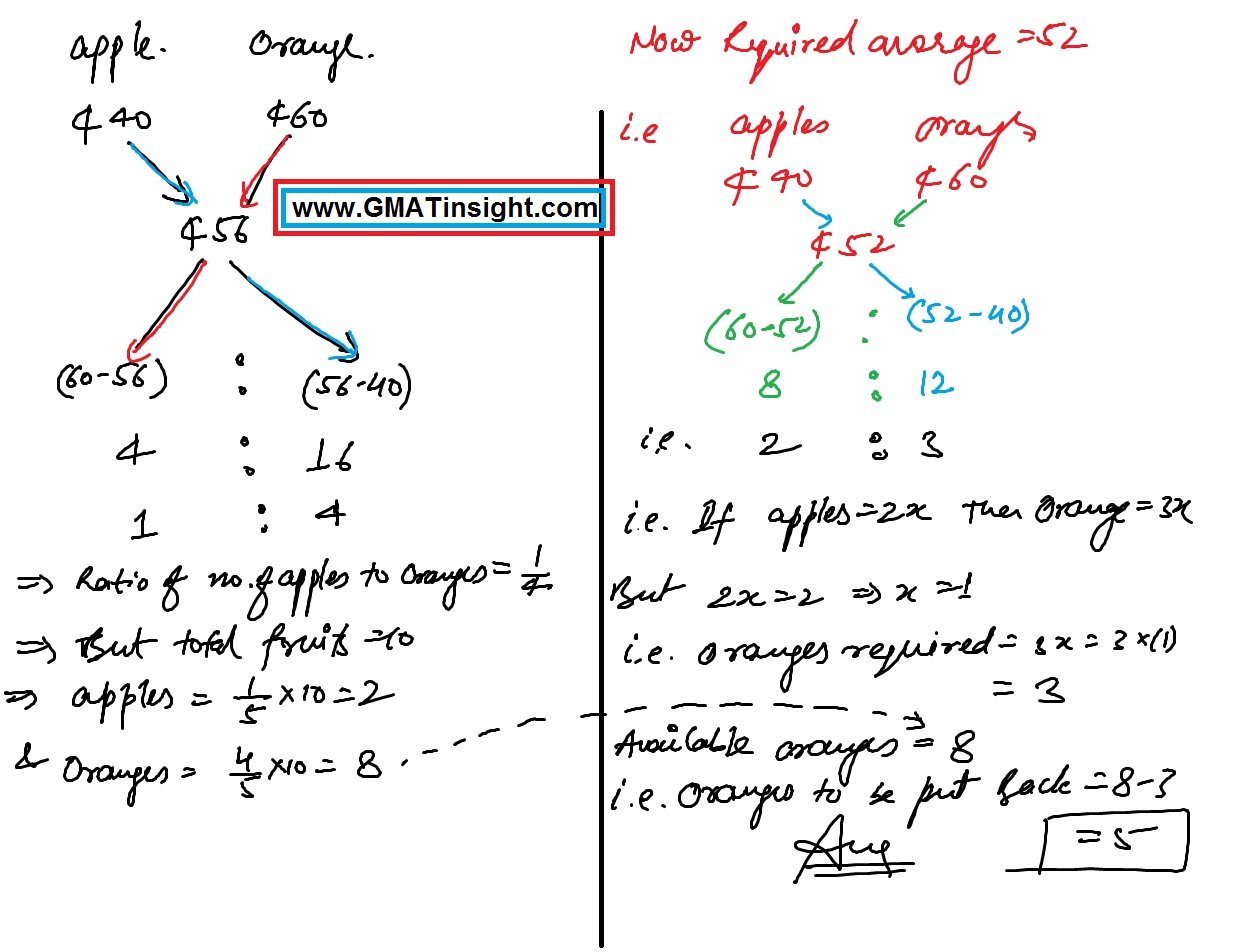 apple. Orange.
¢40 ¢60
www.GMATinsight.com
¢56
(60-56) : (56-40)
4 : 16
1 : 4
⇒ Ratio of no. of apples to Oranges = 1/4
⇒ But total fruits = 10
⇒ apples = 1/5 × 10 = 2
& Oranges = 4/5 × 10 = 8.
Now Required average = 52
i.e apples oranges
¢40 ¢60
¢52
(60-52) : (52-40)
8 : 12
i.e. 2 : 3
i.e. If apples = 2x then Orange = 3x
But 2x = 2 ⇒ x = 1
i.e. oranges required = 3x = 3×(1)
= 3
Available oranges = 8
i.e. Oranges to be put back = 8-3
Ans = 5